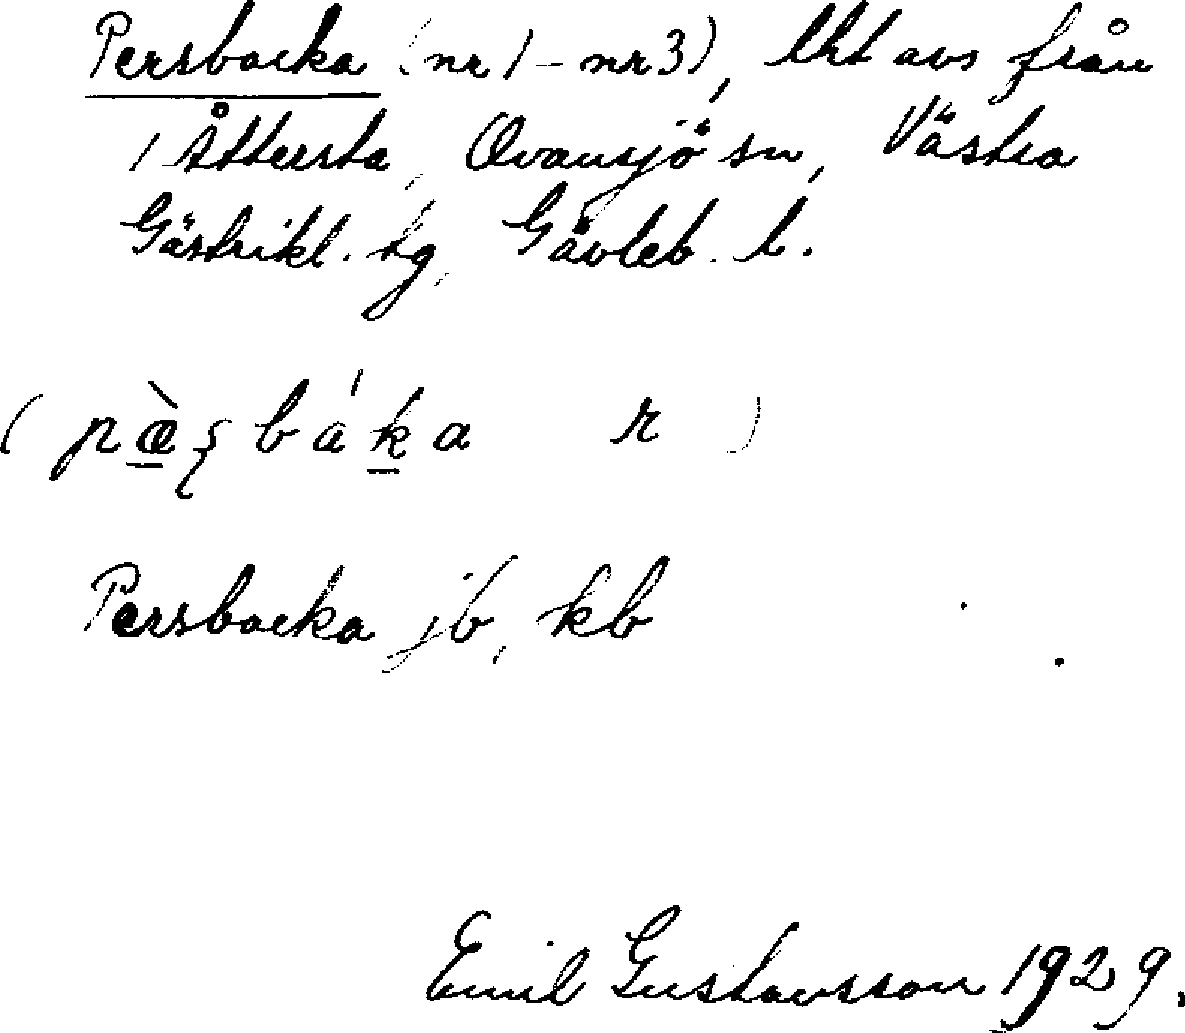 Persbacka (nr 1 – nr 3), lht avs från
1 Åttersta, Ovansjö sn, Västra
Gästrikl. tg, Gävleb. l.
(pæ̱̀ʂbáḵa r)
Persbacka jb, kb
Emil Gustavsson 1929.